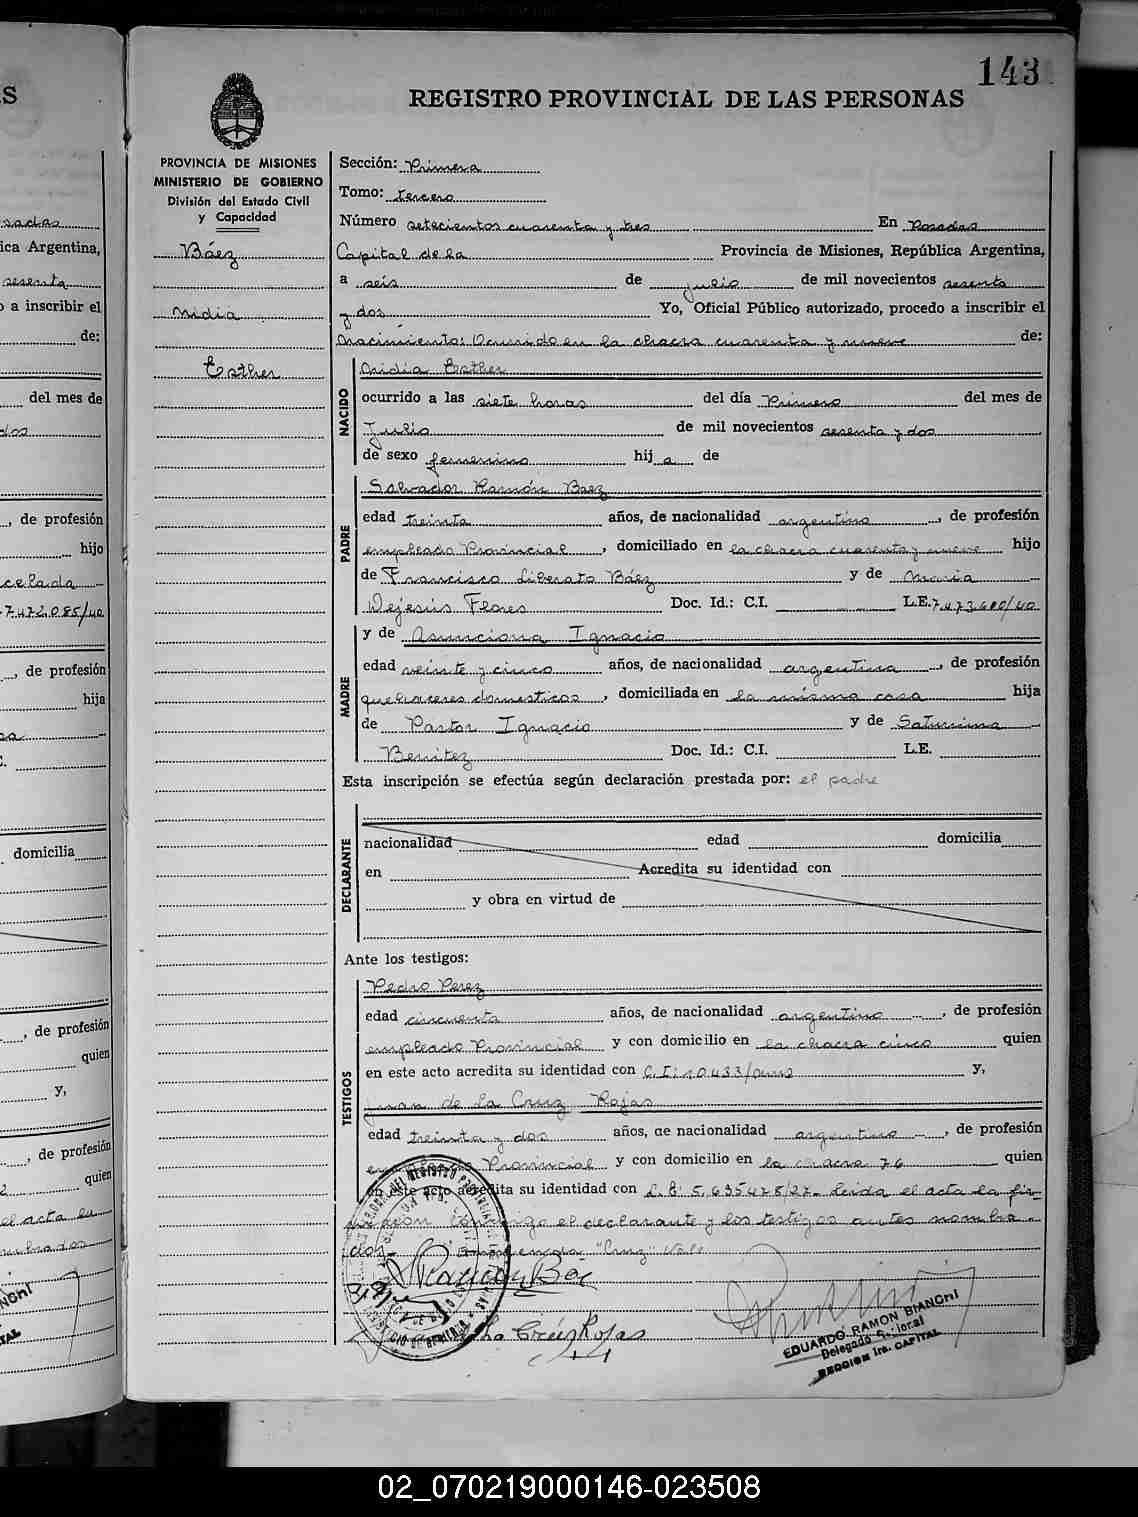 143
REGISTRO PROVINCIAL DE LAS PERSONAS
PROVINCIA DE MISIONES
MINISTERIO DE GOBIERNO
División del Estado Civil
y Capacidad
Báez
Nidia
Esther
Sección: Primera
Tomo: tercero
Número setecientos cuarenta y tres En Posadas
Capital de la Provincia de Misiones, República Argentina,
a seis de julio de mil novecientos sesenta
y dos Yo, Oficial Público autorizado, procedo a inscribir el
Nacimiento: Ocurrido en la chacra cuarenta y nueve de:
NACIDO
Nidia Esther
ocurrido a las siete horas del día Primero del mes de
Julio de mil novecientos sesenta y dos
de sexo femenino hij a de
PADRE
Salvador Ramón Baez
edad treinta años, de nacionalidad argentino, de profesión
empleado Provincial, domiciliado en la chacra cuarenta y nueve hijo
de Francisco Liberato Báez y de Maria
Dejesús Flores Doc. Id.: C.I. L.E. 7.473.600/40
MADRE
y de Asunciona Ignacio
edad veinte y cinco años, de nacionalidad argentina, de profesión
quehaceres domesticos, domiciliada en la misma casa hija
de Pastor Ignacio y de Saturnina
Benitez Doc. Id.: C.I. L.E.
Esta inscripción se efectúa según declaración prestada por: el padre
DECLARANTE
nacionalidad edad domicilia
en Acredita su identidad con
y obra en virtud de
Ante los testigos:
TESTIGOS
Pedro Perez
edad cincuenta años, de nacionalidad argentino, de profesión
empleado Provincial y con domicilio en la chacra cinco quien
en este acto acredita su identidad con C.I: 10.433/ y,
Juan de La Cruz Rojas
edad treinta y dos años, de nacionalidad argentino, de profesión
Provincial y con domicilio en la chacra 76 quien
en este acto acredita su identidad con L.E: 5.695.478/27- Leida el acta la fir-
conmigo el declarante y los testigos antes nombra-
dos- Enmienda "Cruz" Vale
Ramon Baez
la Cruz Rojas
EDUARDO RAMON BIANCHI
Delegado Seccional
SECCION 1ra. CAPITAL
02_070219000146-023508